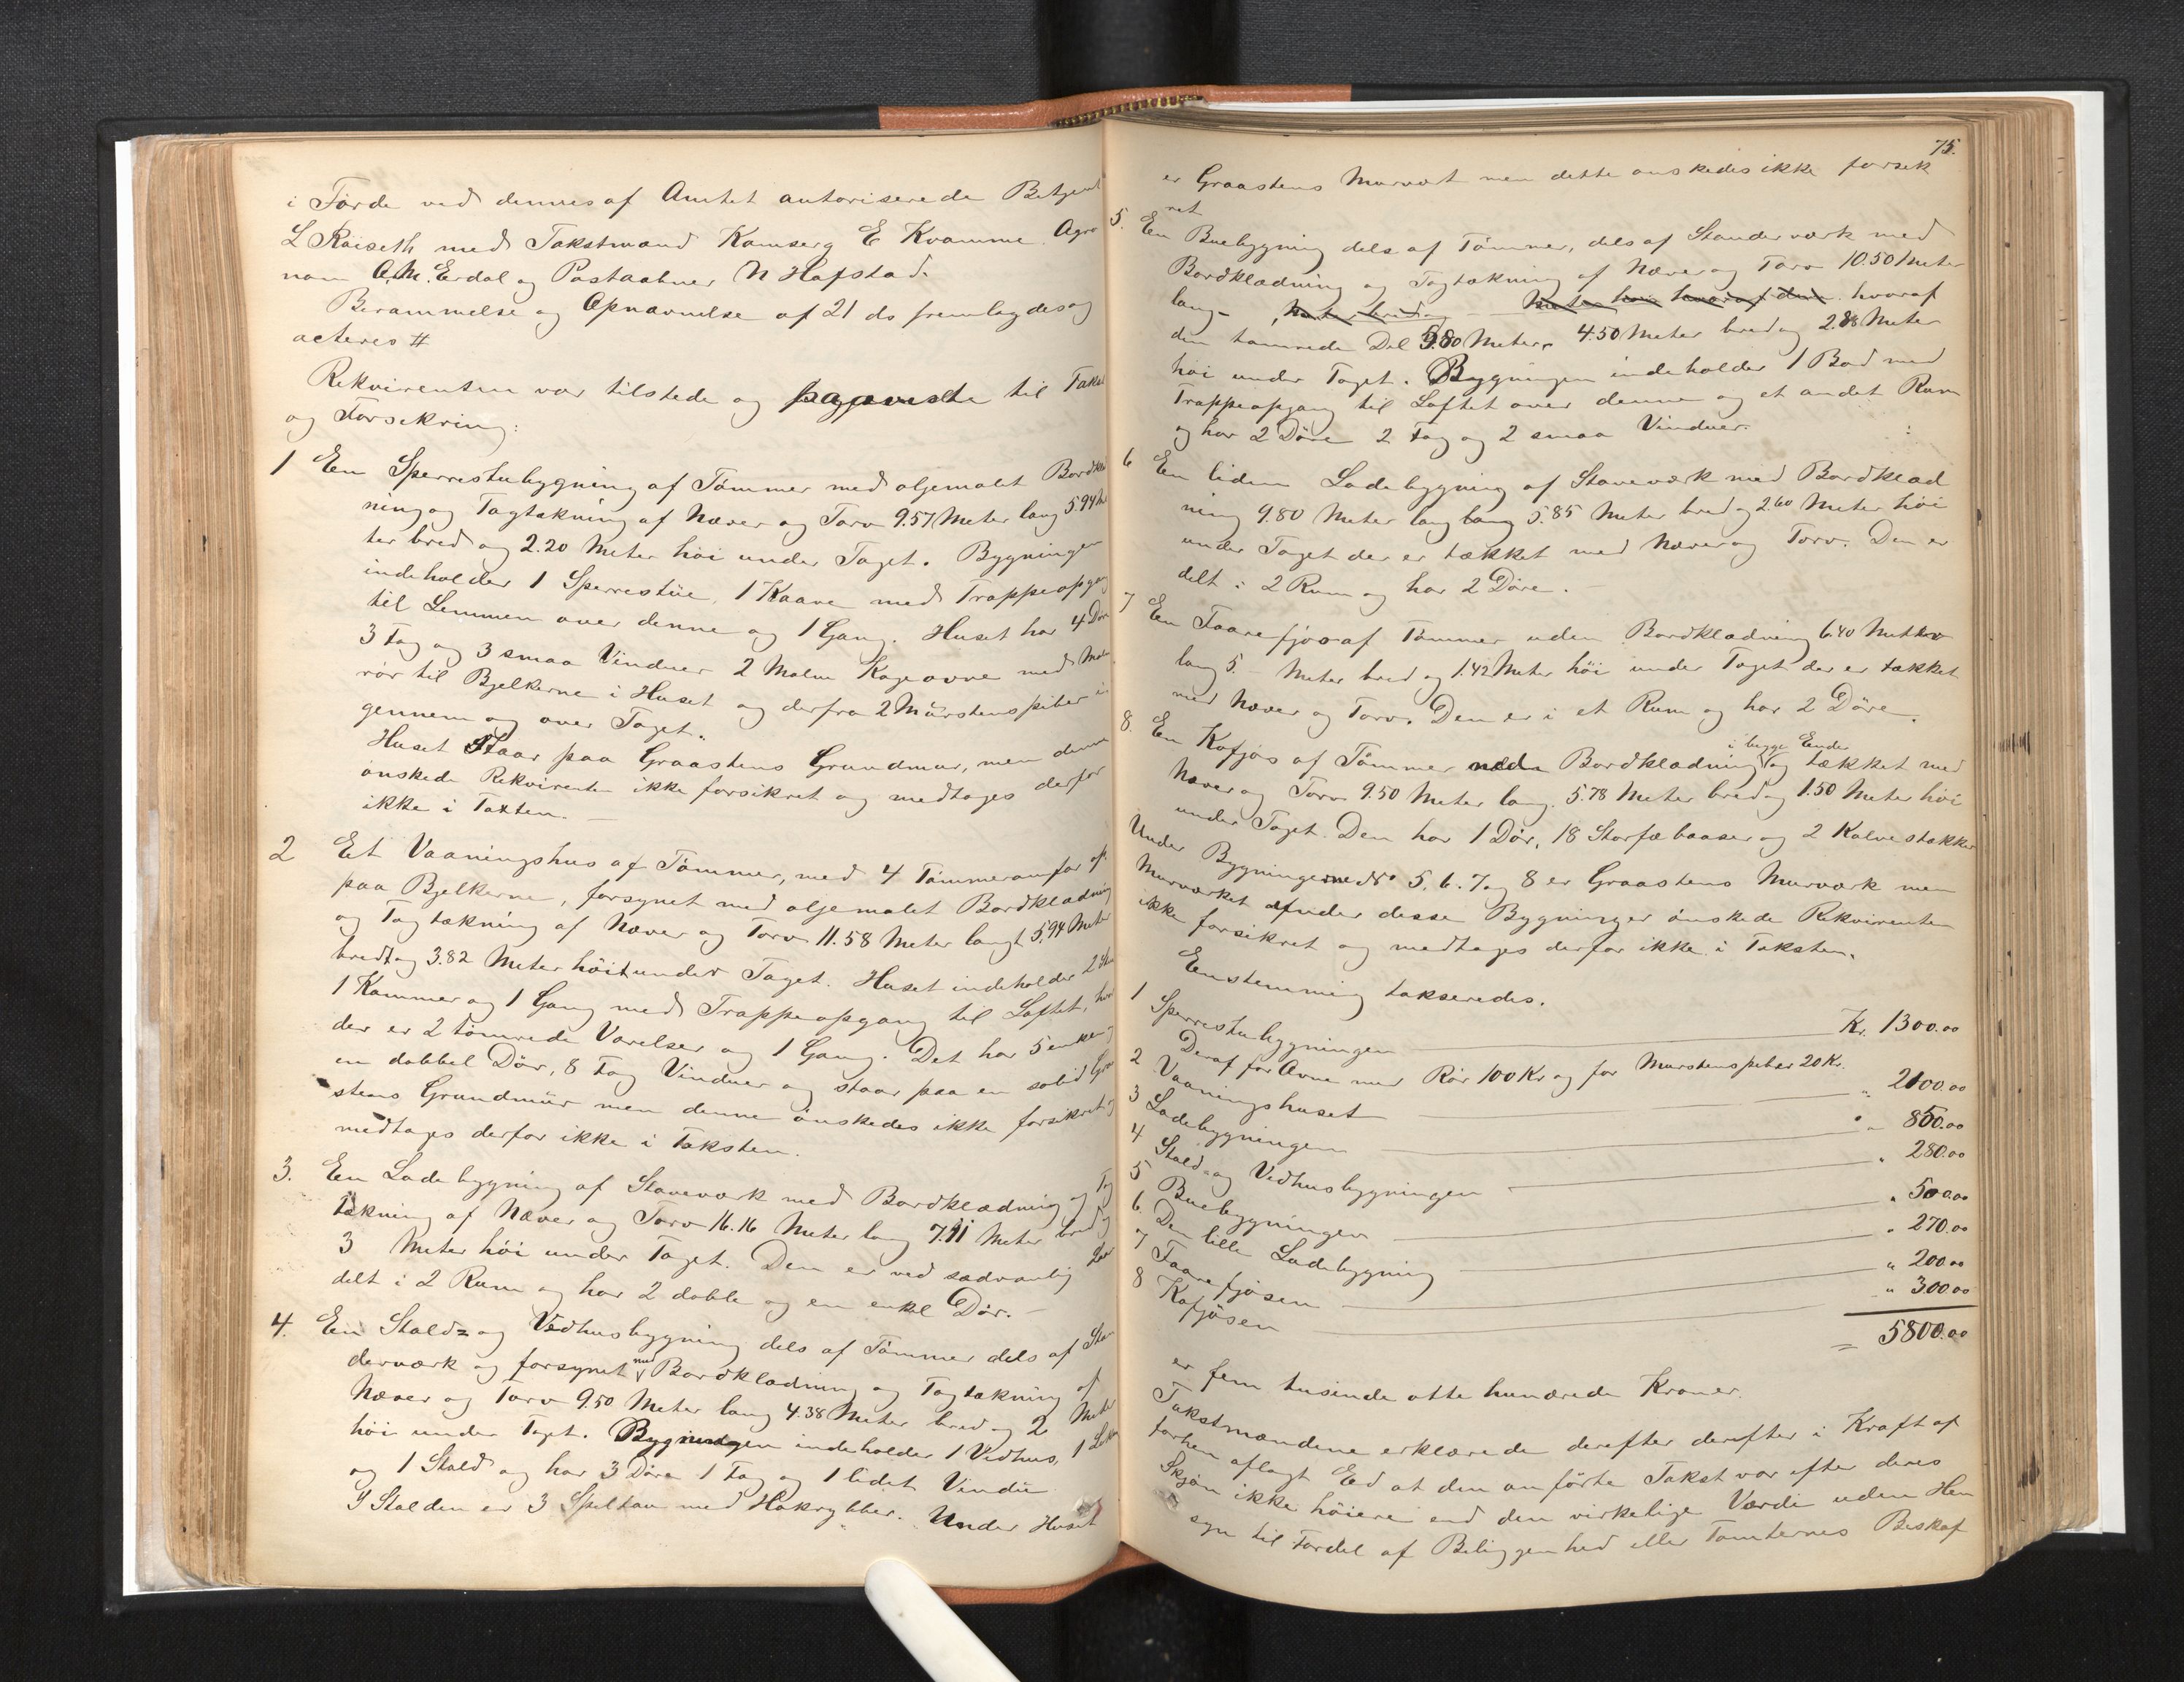 i Förde ved dennes af Amtet autoriserede Betjent
L Raiseth med Takstmænd Kamserg E Kvamme Agro
nom A.M. Erdal og Postaabner N Hafstad.
Berammelse og Opnævnelse af 21 ds fremlagdes og
acteres #
Rekvirenten var tilstede og paaviste til Takst
og Forsikring:
1 En Sperrestubygning af Tömmer med oljemalet Bordklæd
ning og Tagtækning af Næver og Torv 9.57 Meter lang 5.94 Me
ter bred og 2.20 Meter höi under Taget. Bygningen
indeholder 1 Sperrestue, 1 Kaave med Trappeopgang
til Lemmen over denne og 1 Gang. Huset har 4 Döre
3 Fag og 3 smaa Vinduer 2 Malm Kogeovne med Malm
rör til Bjelkerne i Huset og derfra 2 Mürstenspiber i
gennem og over Taget.
Huset staar paa Graastens Grundmur, men denne
önskede Rekvirenten ikke forsikret og medtages derfor
ikke i Taxten.
2 Et Vaaningshus af Tömmer, med 4 Tömmeromfar op
paa Bjelkerne, forsynet med oljemalet Bordklædning
og Tagtækning af Næver og Torv 11.58 Meter langt 5.94 Meter
bredt og 3.82 Meter höit under Taget. Huset indeholder 2
1 Kammer og 1 Gang med Trappeopgang til Loftet, hvor
der er 2 tömrede Værelser og 1 Gang. Det har 5 enke og
en dobbel Dör, 8 Fag Vinduer og staar paa en solid Graa
stens Grundmür men denne önskedes ikke forsikret og
medtages derfor ikke i Taksten.
3. En Ladebygning af Staveværk med Bordklædning og Tag
tækning af Næver og Torv 16.16 Meter lang 7.11 Meter bred og
3 Meter höi under Taget. Den er ved sædvanlig
delt i 2 Rum og har 2 doble og en enkel Dör.
4. En Stald= og Vedhusbygning dels af Tömmer dels af Stan
derværk og forsynet med Bordklædning og Tagtækning af
Næver og Torv 9.50 Meter lang 4.38 Meter bred og 2 Meter
höi under Taget. Bygningen indeholder 1 Vedhus, 1
og 1 Stald og har 3 Döre 1 Fag og 1 lidet Vindü
I Stalden er 3 Spiltau med Hökrybber. Under Huset
75.
er Graastens Murværk men dette önskedes ikke forsik
ret
5. En Buebygning dels af Tömmer, dels af Standerværk med
Bordklædning og Tagtækning af Næver og Torv 10.50 Meter
lang - Meter bred og Meter höi hvoraf den hvoraf
den tömrede Del 5.80 Meter, 4.50 Meter bred og 2.88 Meter
höi under Taget. Bygningen indeholder 1 Bod med
Trappeopgang til Loftet over denne og et andet Rum
og har 2 Döre 2 Fag og 2 smaa Vinduer.
6 En liden Ladebygning af Staveværk med Bordklæd
ning 9.80 Meter lang lang 5.85 Meter bred og 2.60 Meter höi
under Taget der er tækket med Næver og Torv. Den er
delt i 2 Rum og har 2 Döre.
7 En Faarefjös af Tömmer uden Bordklædning 6.40 Meter
lang 5. - Meter bred og 1.42 Meter höi under Taget der er tækket
med Næver og Torv. Den er i et Rum og har 2 Döre.
8. En Kofjös af Tömmer med Bordklædning i begge Ender og tækket med
Næver og Torv 9.50 Meter lang, 5.78 Meter bred og 1.50 Meter höi
under Taget. Den har 1 Dör, 18 Storfæbaaser og 2 Kalvestakker
Under Bygningerne No 5. 6. 7 og 8 er Graastens Murværk men
Murværket under disse Bygninger önskede Rekvirenten
ikke forsikret og medtages derfor ikke i Taksten.
Eenstemmig takseredes.
1 Sperrestubygningen Kr. 1300.00
Deraf for Ovne med Rör 100 Kr og for Murstenspiber 20 Kr.
2 Vaaningshuset " 2100.00
3 Ladebygningen " 850.00
4 Stald- og Vedhusbygningen " 280.00
5 Buebygningen " 500.00
6. Den lille Ladebygning " 270.00
7 Faarefjösen " 200.00
8 Kofjösen " 300.00
= 5800.00
er fem tusinde otte hundrede Kroner.
Takstmændene erklærede derefter derefter i Kraft af
forhen aflagt Ed at den anförte Takst var efter deres
Skjön ikke höiere end den virkelige Værdi uden Hen
syn til Fordel af Beliggenhed eller Tomternes Beskaf